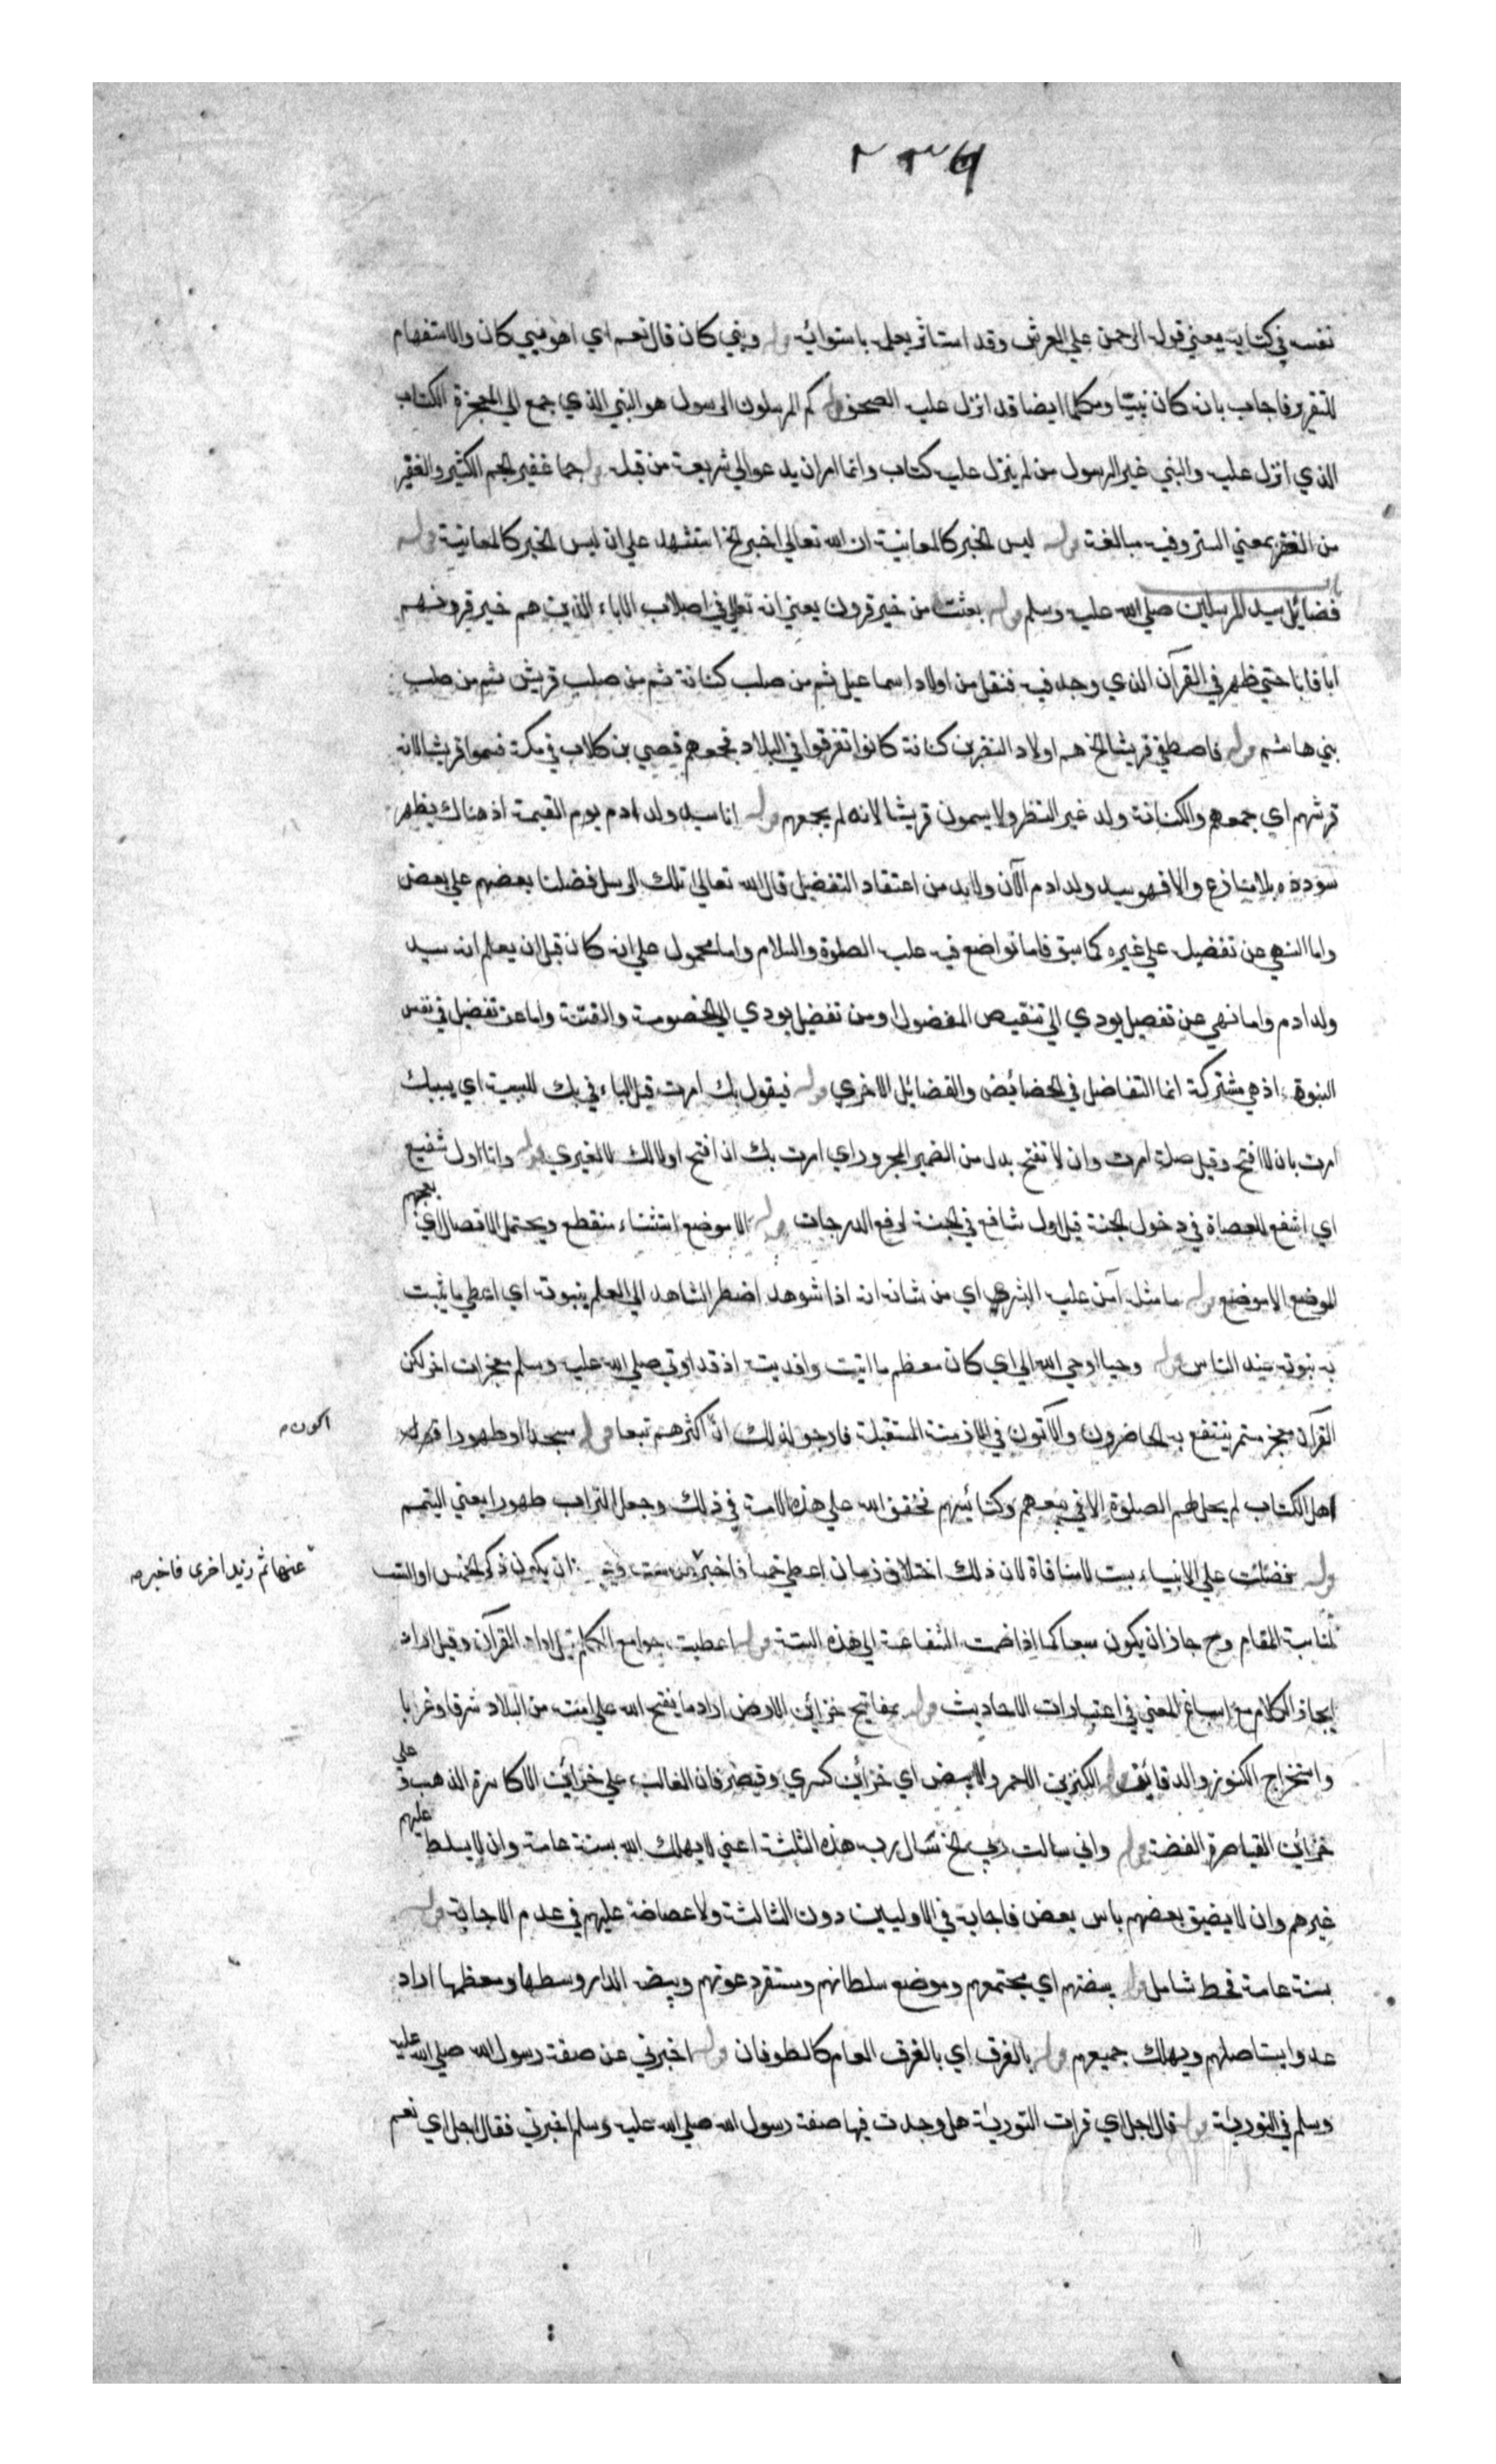 ٢٣٦
نفسه في كتابه يعني قوله الرحمن علي العرش وقد استاثر بعلمه باستوائه قوله ونبي كان قال نعم اي اهو نبي كان والاستفهام
للتقرير فاجاب بانه كان نبيّا ومكلما ايضا قد انزل عليه الصحف قوله كم المرسلون الرسول هو النبي الذي جمع الي المعجزة الكتاب
الذي انزل عليه والنبي غير الرسول من لم ينزل عليه كتاب وانما امر ان يدعو الي شريعة من قبله قوله جما غفير الجم الكثير والغفير
من الغفر بمعني الستر وفيه مبالغة قوله ليس الخبر كالمعاينة ان الله تعالي اخبر الخ استشهد علي ان ليس الخبر كالمعاينة قوله
باب
فضائل سيد المرسلين صلي الله عليه وسلم قوله بعثت من خير قرون يعني انه تعالي في اصلاب الاباء الذين هم خير قرونهم
ابا فابا حتي ظهر في القرآن الذي وجد فيه فنقل من اولاد اسماعيل ثم من صلب كنانة ثم من صلب قريش ثم من صلب
بني هاشم قوله فاصطفي قريشا الخ هم اولاد النضر بن كنانة كانوا تفرقوا في البلاد فجمعهم قصي بن كلاب في مكة فسموا قريشا لانه
قرشهم اي جمعهم والكنانة ولد غير النظر ولا يسمون قريشا لانه لم يجمعهم قوله انا سيد ولد ادم يوم القيمة اذ هناك يظهر
سودده بلا منازع والا فهو سيد ولد ادم الآن ولا بد من اعتقاد التفضيل قال الله تعالي تلك الرسل فضلنا بعضهم علي بعض
واما النهي عن تفضيله علي غيره كما سبق فاما تواضع فيه عليه الصلوة والسلام واما محمول علي انه كان قبل ان يعلم انه سيد
ولد ادم واما نهي عن تفصيل يودي الي تنقيص المفضول او من تفضيل يودي الي الخصومة والفتنة واما عن تفضيل في نفس
النبوة اذ هي مشتركة انما التفاضل في الخصائص والفضائل الاخري قوله فيقول بك امرت قيل الباء في بك للسبب اي بسببك
امرت بان لا افتح وقيل صلة امرت وان لا تفتح بدل من الضمير المجرور اي امرت بك ان افتح اولا لك لا لغيرك قوله وانا اول شفيع
اي اشفع للعصاة في دخول الجنة قيل اول شافع في الجنة لرفع الدرجات قوله الا موضع استثناء منقطع ويحتمل الاتصال اي يعجبهم
الموضع الا موضع قوله ما مثله آمن عليه البشر اي من شانه انه اذا شوهد اضطر الشاهد الي العلم بنبوته اي اعطي ما يثبت
به نبوته عند الناس قوله وحيا اوحي الله الي اي كان معظم ما اتيت وافديت اذ قد اوتي صلي الله عليه وسلم معجزات اخر لكن
القرآن معجز مستمر ينتفع به الحاضرون والآتون في الازمنة المستقبلة فارجو لذلك انّ اكثرهم تبعا قوله مسجدا وطهورا
اكون
اهل الكتاب لم يحل لهم الصلوة الا في بيعهم وكنائسهم فخفف الله علي هذه الامة في ذلك وجعل التراب طهورا يعني التيمم
قوله فضلت علي الانبياء بست لا منافاة لان ذلك اختلاف زمان اعطي خمسا فاخبر ان يكون ذكر الخمس او الست
عنها ثم زيد اخرى فاخبر
لمناسبة المقام وح جاز ان يكون سبعا كما اذا ضمت الشفاعة الي هذه الستة قوله اعطيت جوامع الكلم قيل اراد القرآن وقيل اراد
ايجاز الكلام مع اسباغ المعني في اعتبارات الاحاديث قوله بمفاتيح خزائن الارض اراد ما يفتح الله علي امته من البلاد شرقا وغربا
واستخراج الكنوز والدفائن قوله الكنزين الاحمر والابيض اي خزائن كسري وقيصر فان الغالب علي خزائن الاكاسرة الذهب و علي
خزائن القياصرة الفضة قوله واني سالت ربي الخ سال ربه هذه الثلثة اعني لا يهلك الله بسنة عامة وان لا يسلط عليهم
غيرهم وان لا يضيق بعضهم باس بعض فاجابه في الاوليين دون الثالثة ولا عضاضة عليهم في عدم الاجابة قوله
بسنة عامة قحط شامل قوله بيضتهم اي مجتمعهم وموضع سلطانهم ومستقر دعوتهم وبيضة الدار وسطها ومعظمها اراد
عدوا يستاصلهم ويهلك جميعهم قوله بالغرق اي بالغرق العام كالطوفان قوله اخبرني عن صفة رسول الله صلي الله عليه
وسلم في التورية قوله قال اجل اي قرات التورية هل وجدت فيها صفة رسول الله صلي الله عليه وسلم اخبرني فقال اجل اي نعم